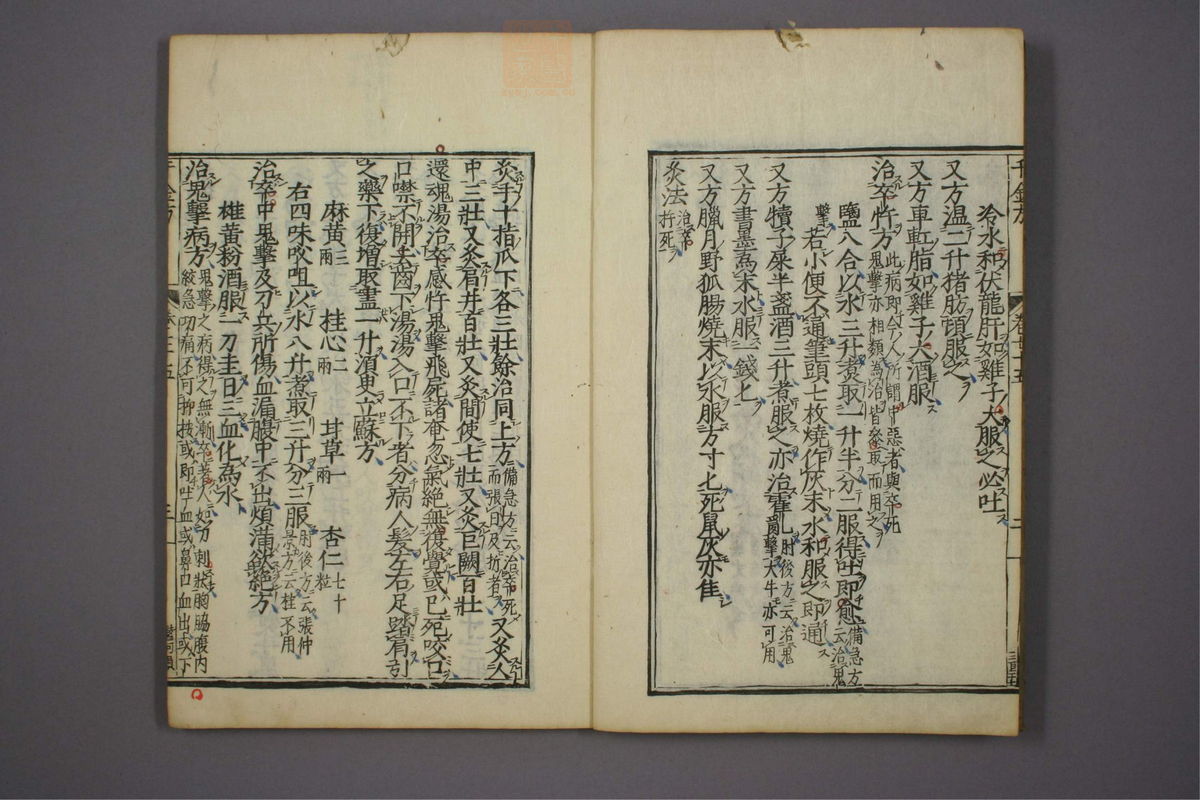 冷水和伏龍肝如雞子大服之必吐
又方温二升猪肪頓服之
又方車䡉脂如雞子大酒服
治卒忤方此病即今人所謂中惡者與卒死鬼擊亦相類為治皆叅取而用之
鹽八合以水三升煮取一升半分二服得吐即愈備急方云治鬼
擊若小便不通筆頭七枚燒作灰末水和服之即通
又方犢子屎半盞酒三升煮服之亦治霍亂肘後方云治鬼擊大牛亦可用
又方書墨為末水服一錢匕
又方臘月野狐腸燒末以水服方寸匕死鼠灰亦佳
灸法治卒忤死
灸手十指爪下各三壯餘治同上方備急方云治卒死而張目及折者又灸人
中三壯又灸肩井百壯又灸間使七壯又灸巨闕百壯
還魂湯治卒感忤鬼擊飛屍諸奄忽氣絕無復覺或已死咬口
口噤不開去齒下湯湯入口不下者分病人髮左右足踏肩引
之藥下復增取盡一升須臾立蘇方
麻黄三兩 桂心二兩 甘草一兩 杏仁七十粒
右四味㕮咀以水八升煮取三升分三服肘後方云張仲景方云桂不用
治卒中鬼擊及刀兵所傷血漏腹中不出煩滿欲絕方
雄黄粉酒服一刀圭日三血化為水
治鬼擊病方鬼擊之病得之無漸卒著人如刀刺狀胸脇腹内絞急切痛不可抑按或即吐血或鼻口血出或下